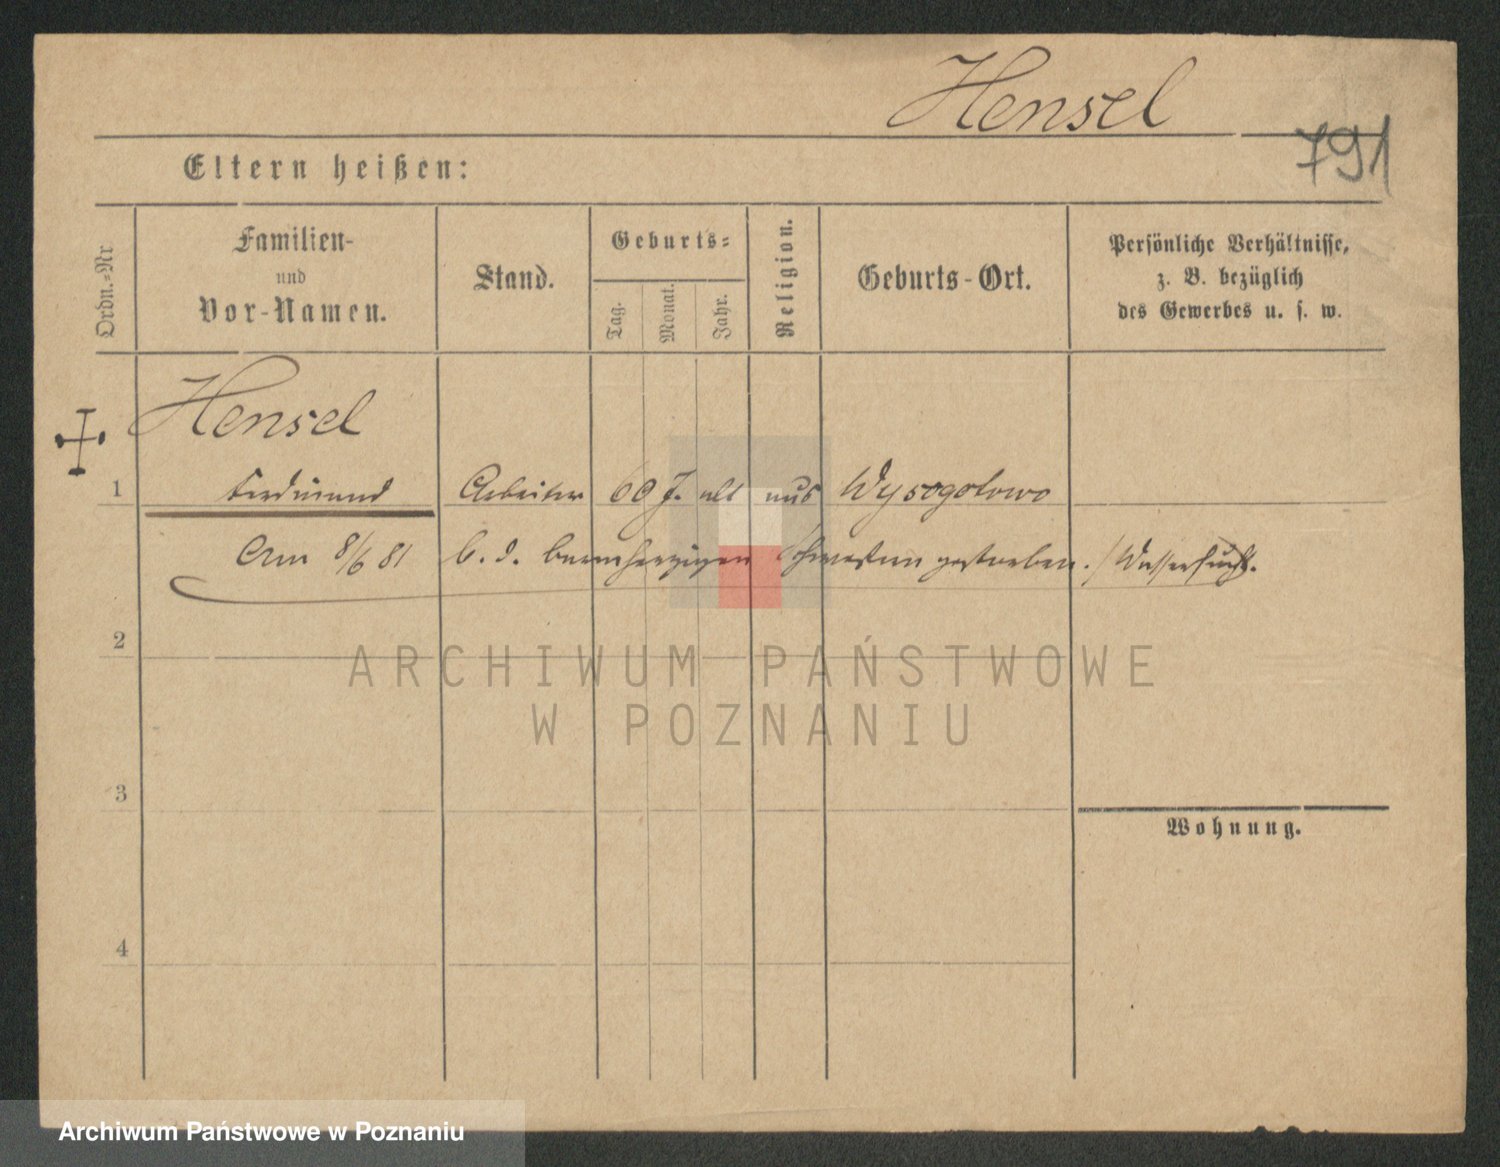 Hensel
791
Eltern heißen:
Ordn.-Nr
Familien-
und
Vor-Namen.
Stand.
Geburts-
Tag.
Monat.
Jahr.
Religion.
Geburts-Ort.
Persönliche Verhältnisse,
z. B. bezüglich
des Gewerbes u. s. w.
Hensel
1 Ferdinand Arbeiter 60 J. alt aus Wysogotowo
Am 8/6 81 b. d. barmherzigen Schwestern gestorben. / Wassersucht.
2
ARCHIWUM PAŃSTWOWE
W POZNANIU
3
Wohnung.
4
Archiwum Państwowe w Poznaniu